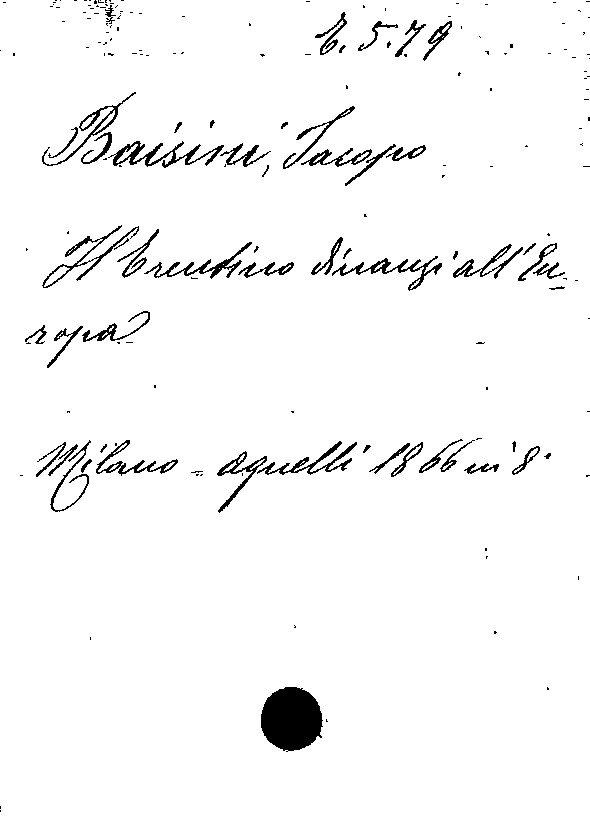 E. 5. 79
Baisini, Jacopo
Il Trentino dinanzi all' Eu-
ropa
Milano - Agnelli 1866 in 8°